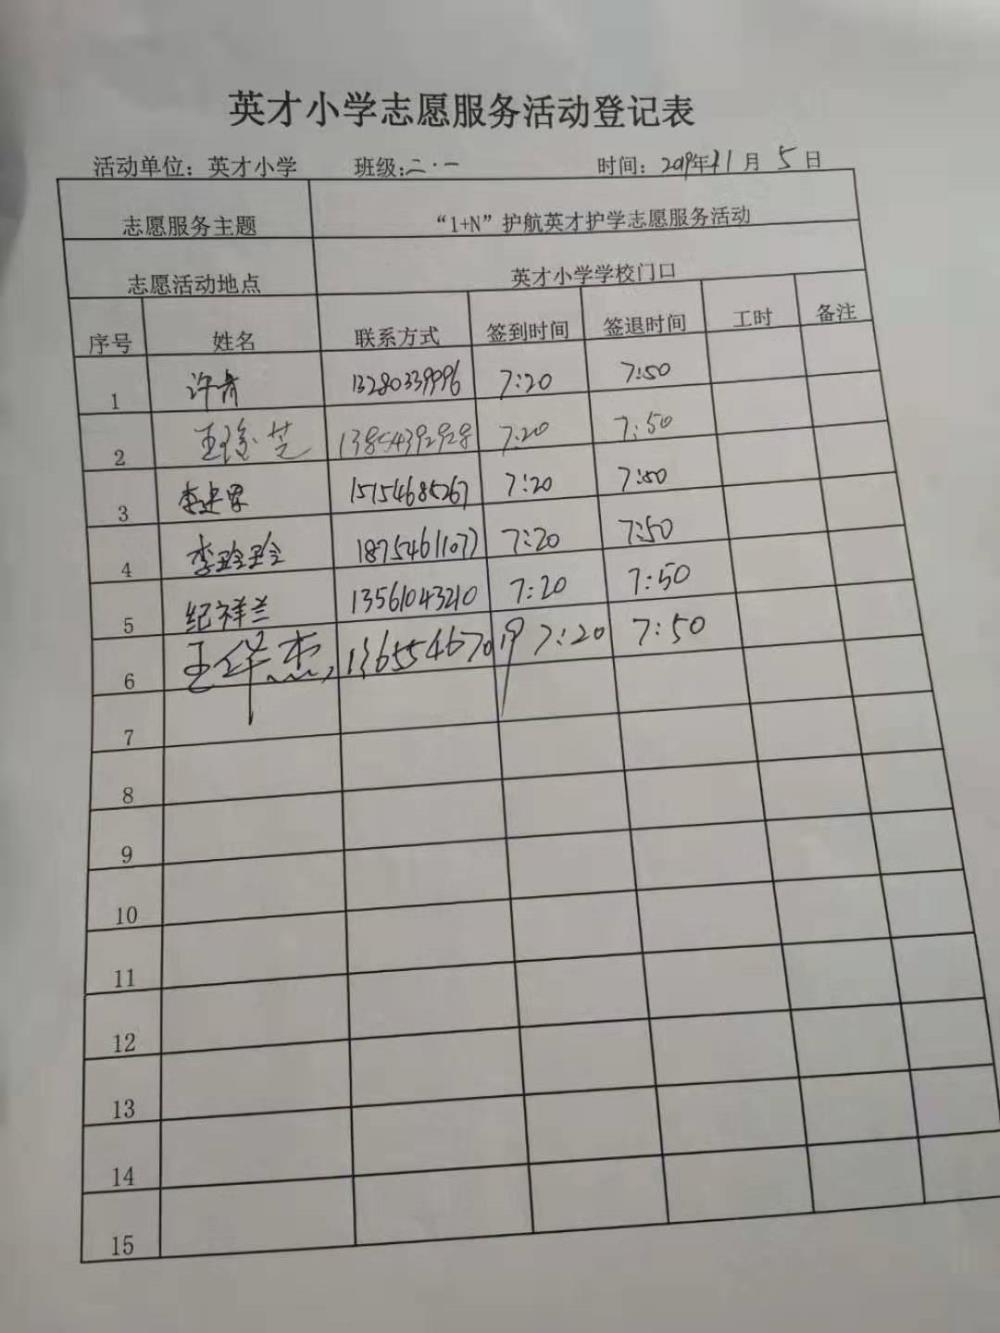 英才小学志愿服务活动登记表
活动单位：英才小学 班级:二·一 时间：2019年11月5日
志愿服务主题 “1+N”护航英才护学志愿服务活动
志愿活动地点 英才小学学校门口
序号 姓名 联系方式 签到时间 签退时间 工时 备注
1 许青 13280339996 7:20 7:50
2 13854392928 7:20 7:50
3 15154685267 7:20 7:50
4 李玲玲 18754611077 7:20 7:50
5 纪祥兰 13561043210 7:20 7:50
6 王华杰 13655467019 7:20 7:50
7
8
9
10
11
12
13
14
15